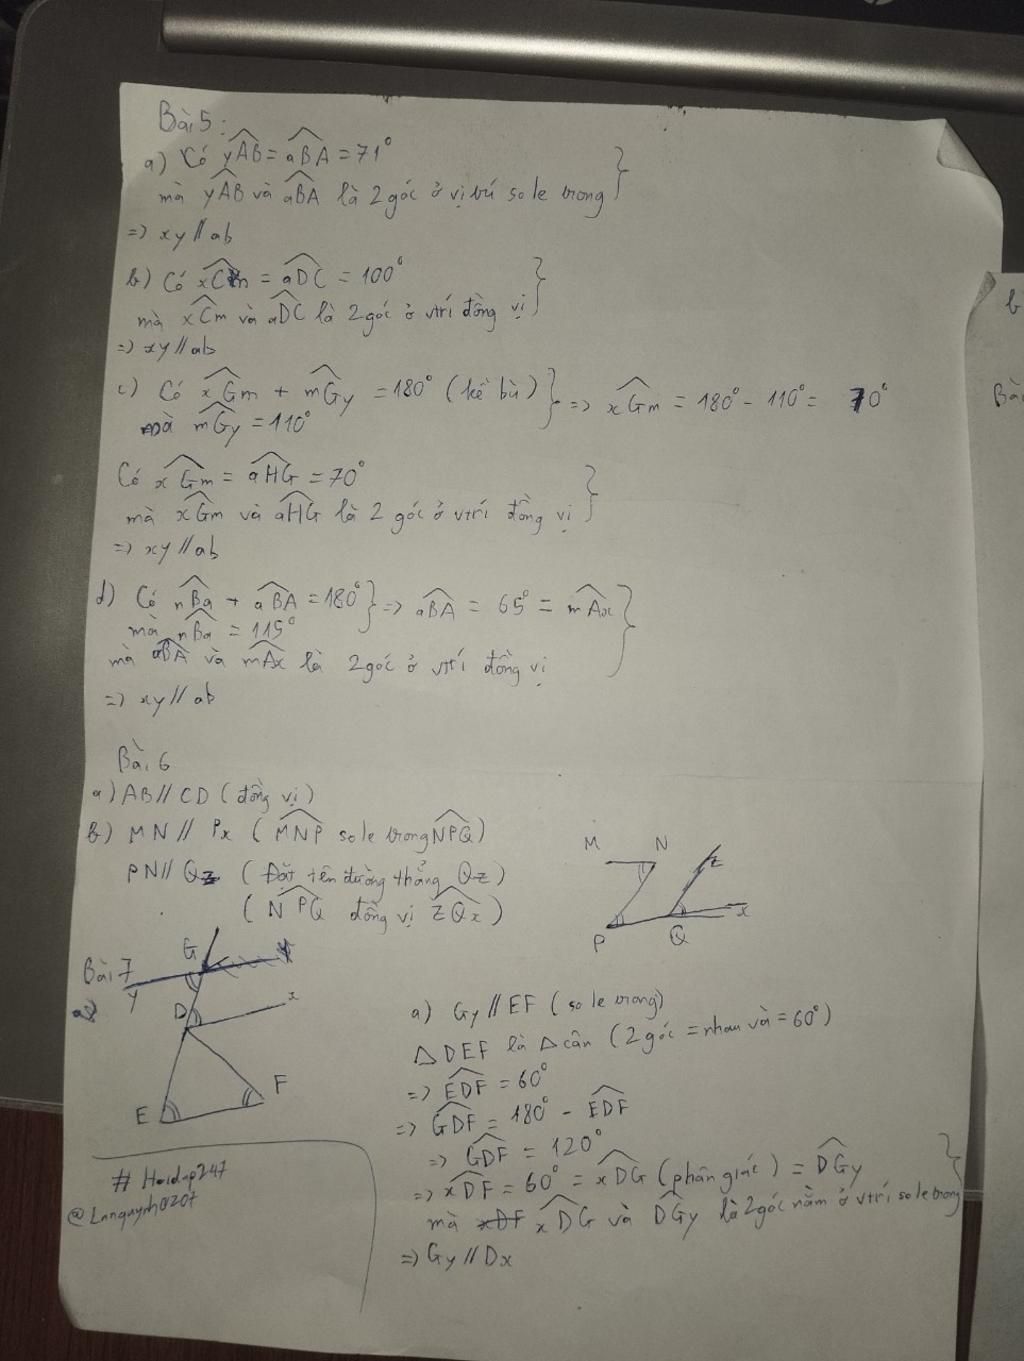 Bài 5:
a) Có yAB = aBA = 71°
mà yAB và aBA là 2 góc ở vị trí so le trong
=> xy // ab
b) Có xCm = aDC = 100°
mà xCm và aDC là 2 góc ở vtrí đồng vị
=> xy // ab
c) Có xGm + mGy = 180° (kề bù) => xGm = 180° - 110° = 70°
mà mGy = 110°
Có xGm = aHG = 70°
mà xGm và aHG là 2 góc ở vtrí đồng vị
=> xy // ab
d) Có nBa + aBA = 180° => aBA = 65° = mAx
mà nBa = 115°
mà aBA và mAx là 2 góc ở vtrí đồng vị
=> xy // ab
Bài 6
a) AB // CD (đồng vị)
b) MN // Px (MNP so le trong NPQ)
PN // Qz (Đặt tên đường thẳng Qz)
(NPQ đồng vị zQx)
M N z
P Q x
Bài 7
G
y
D x
E F
a) Gy // EF (so le trong)
△DEF là △ cân (2 góc = nhau và = 60°)
=> EDF = 60°
=> GDF = 180° - EDF
=> GDF = 120°
=> xDF = 60° = xDG (phân giác) = DGy
mà xDG và DGy là 2 góc nằm ở vtrí so le trong
=> Gy // Dx
# Hoidap247
@Lanquynh0207
b
Bài